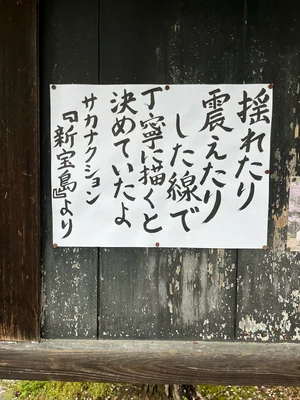 揺れたり
震えたり
した線で
丁寧に描くと
決めていたよ
サカナクション
『新宝島』より